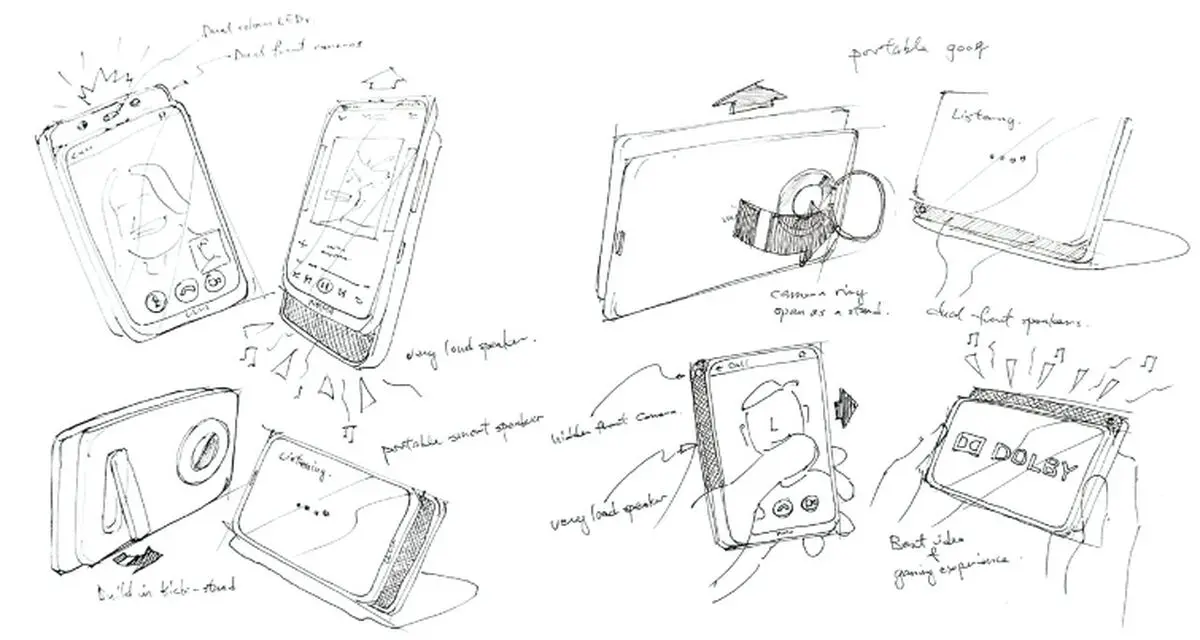 Dual colour LEDs
Dual front cameras
Call
very loud speaker.
portable smart speaker
Listening.
Build in kick-stand
portable goog
Listening.
camera ring
open as a stand.
dual-front speakers.
Call
hidden front camera.
very loud speaker
DOLBY
Best video
&
gaming experience.